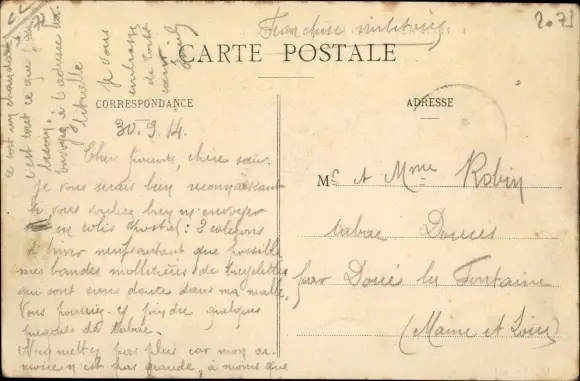 Franchise militaire
2.75
CARTE POSTALE
CORRESPONDANCE
ADRESSE
30.9.14.
Chers parents, chère sœur.
Je vous serais bien reconnaissant
si vous vouliez bien m'envoyer
en colis postal : 2 caleçons
d'hiver neufs autant que possible
mes bandes molletières de bicyclette
qui sont sans doute dans ma malle,
Vous pourriez y joindre quelques
paquets de tabac.
N'en mettez pas plus car mon ar-
moire n'est pas grande, à moins que
ce soit un chandail
c'est tout ce que j'ai
besoin.
envoyez à l'adresse ha-
bituelle
Je vous
embrasse
de tout
cœur
Mr et Mme Robin
tabac Douces
par Doué la Fontaine
(Maine et Loire)